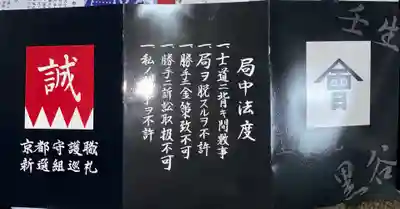 誠
京都守護職
新選組巡札
局中法度
一、士道ニ背キ間敷事
一、局ヲ脱スルヲ不許
一、勝手ニ金策致不可
一、勝手ニ訴訟取扱不可
一、私ノ闘争ヲ不許
壬生
會
黒谷